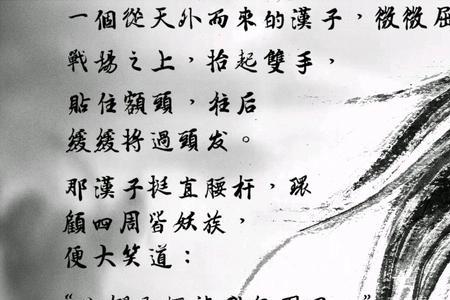 一個從天外而來的漢子，微微屈
戰場之上，抬起雙手，
貼住額頭，往后
緩緩将過頭发。
那漢子挺直腰杆，環
顧四周皆妖族，
便大笑道：